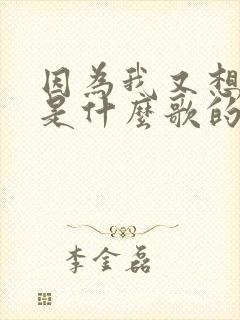 因為我又想
是什麼歌的
李金磊